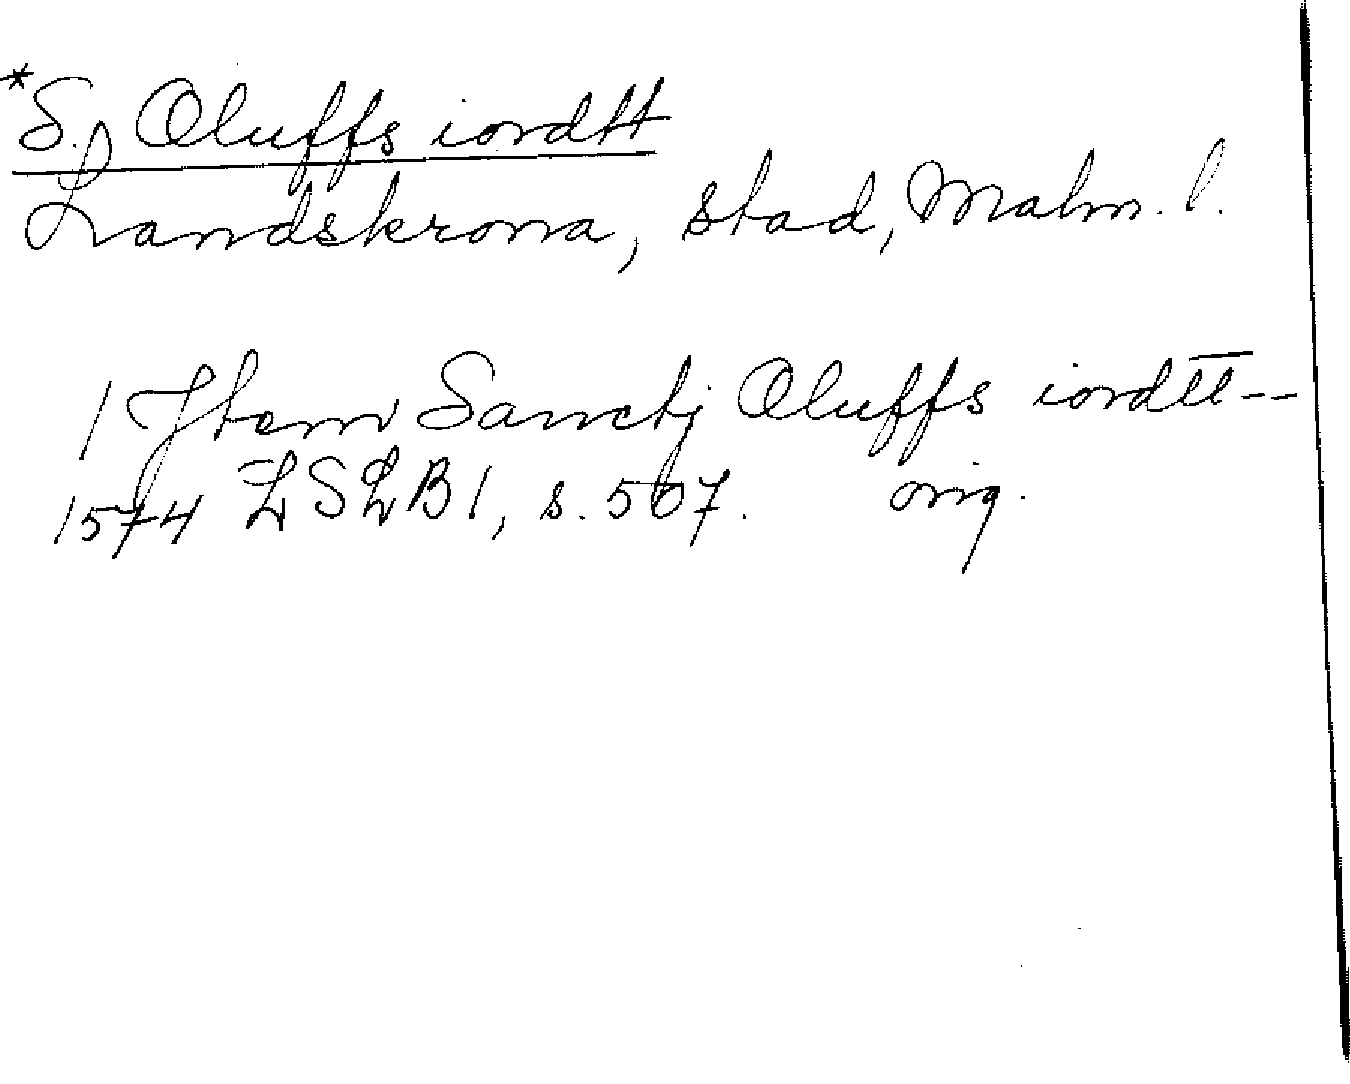 *S. Oluffs iordtt
Landskrona, stad, Malm. l.
1 Jtem Sanctj Oluffs iordtt--
1574 LSLB1, s. 567. orig.